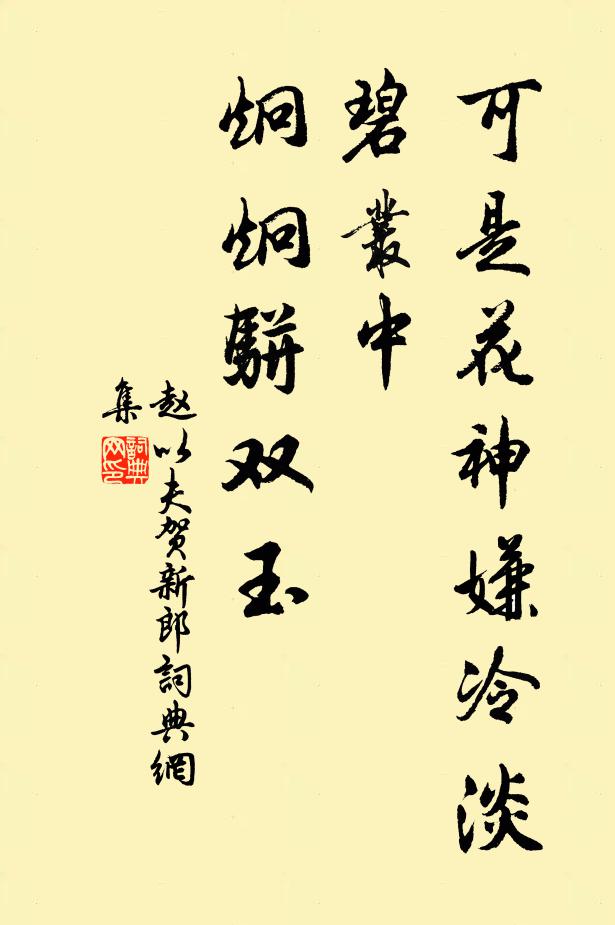 可是花神嫌冷淡
碧叢中
炯炯駢双玉
赵以夫贺新郎詞典網
集
詞典网印